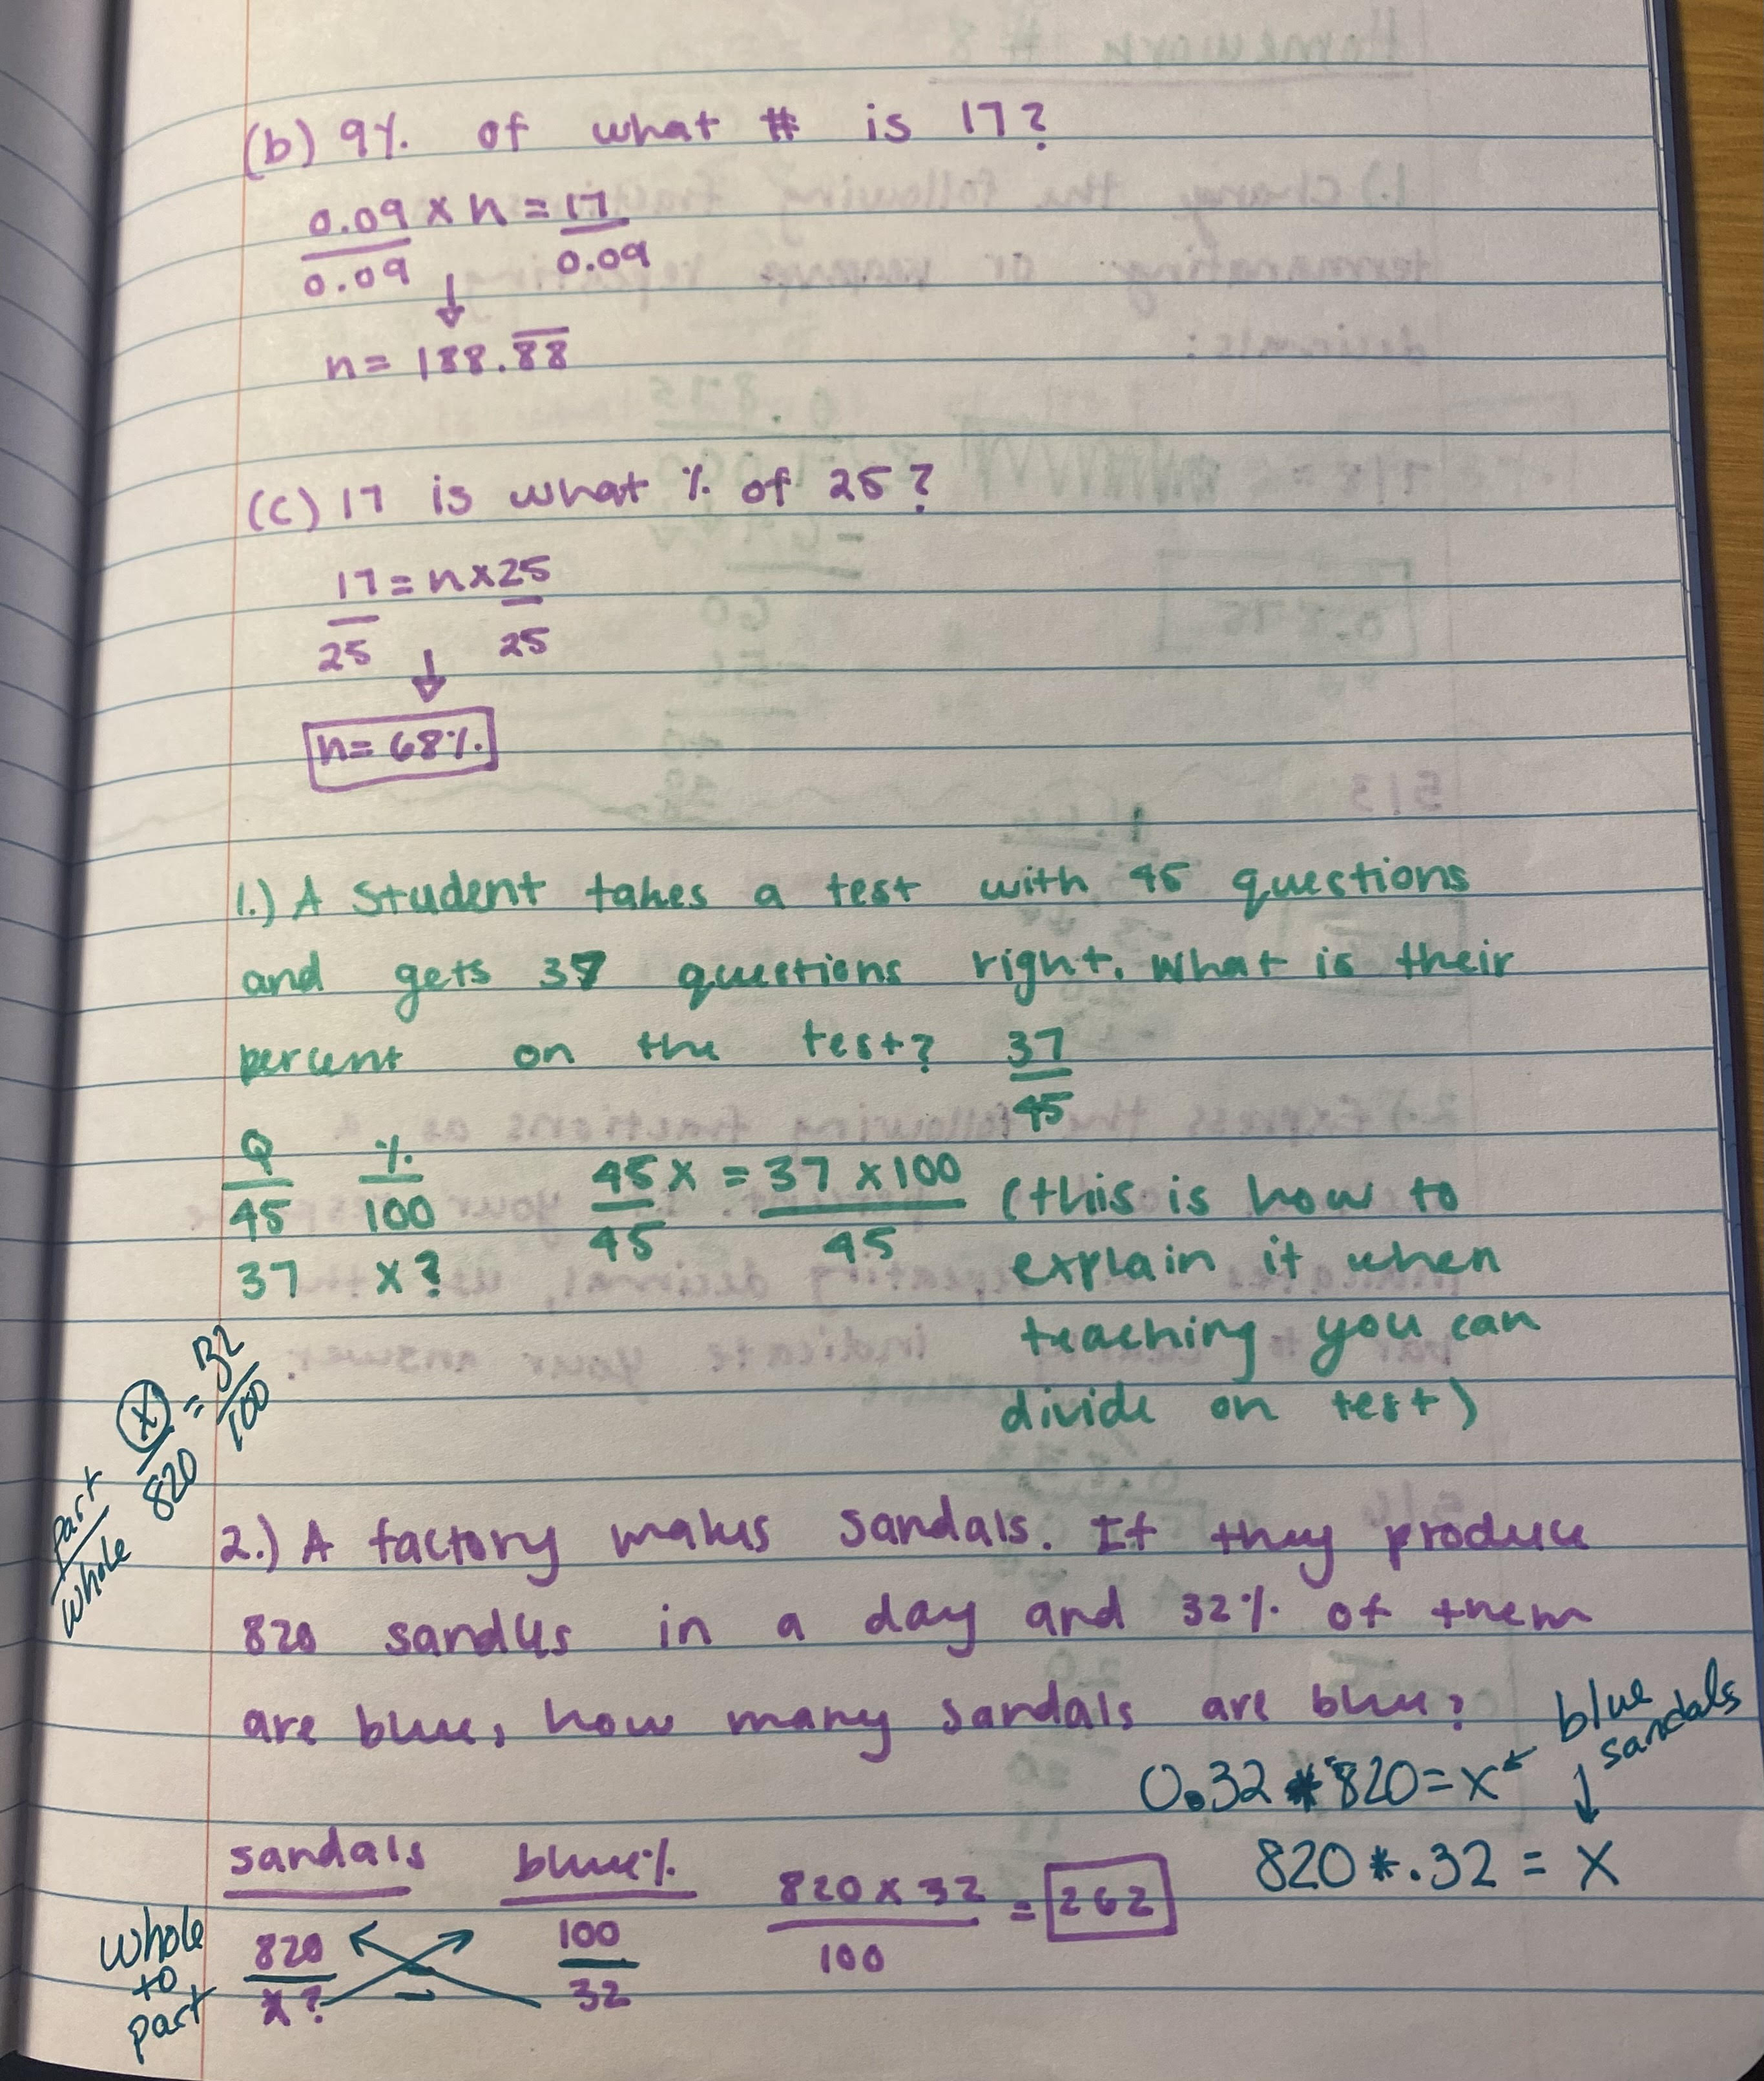 (b) 9% of what # is 17?
0.09 x n = 17
0.09 0.09
↓
n = 188.8̅8̅
(c) 17 is what % of 25?
17 = n x 25
25 25
↓
n = 68%
1.) A student takes a test with 45 questions
and gets 37 questions right. What is their
percent on the test? 37
45
Q % 45x = 37 x 100 (this is how to
45 100 45 45 explain it when
37 x? teaching you can
divide on test)
x = 32
820 100
part
whole
2.) A factory makes sandals. If they produce
820 sandals in a day and 32% of them
are blue, how many sandals are blue?
blue
sandals
0.32 * 820 = x ←
↓
820 * .32 = x
sandals blue%
820 x 32 = 262
100
whole
to
part
820 100
x? = 32